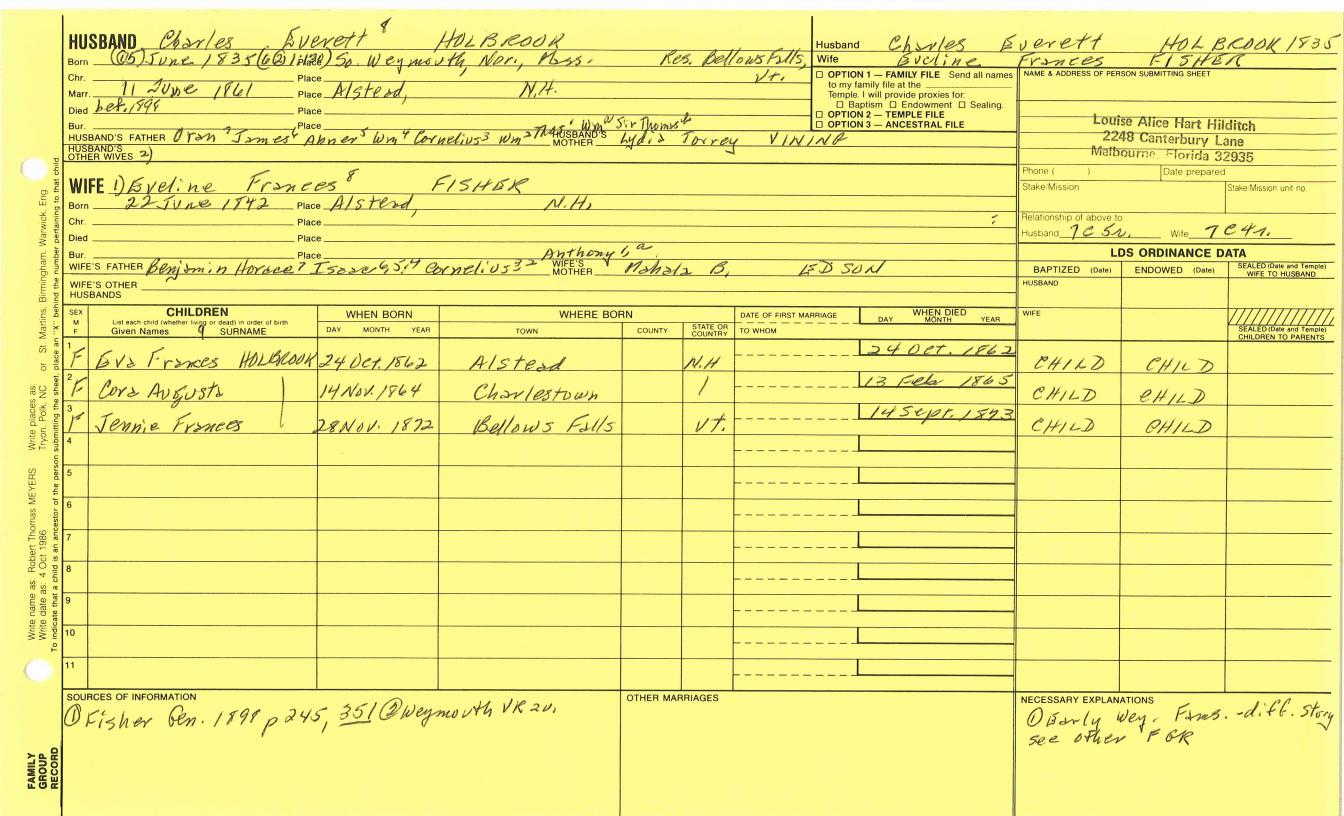 HUSBAND Charles Everett 8 HOLBROOK
Born 5 June 1835 Place So. Weymouth, Nor., Mass. Res. Bellows Falls, Vt.
Chr. Place
Marr. 11 June 1861 Place Alstead, N.H.
Died bef. 1898 Place
Bur. Place
HUSBAND'S FATHER Oran 7 James 6 Abner 5 Wm 4 Cornelius 3 Wm 2 Thos 1 Wm Sir Thomas HUSBAND'S MOTHER Lydia Torrey VINING
HUSBAND'S OTHER WIVES 2)
WIFE 1) Eveline Frances 8 FISHER
Born 22 June 1842 Place Alstead, N.H.
Chr. Place
Died Place
Bur. Place
WIFE'S FATHER Benjamin Horace 7 Isaac 6 5 4 Cornelius 3 2 Anthony WIFE'S MOTHER Mahala B. EDSON
WIFE'S OTHER HUSBANDS
Husband Charles Everett HOLBROOK 1835
Wife Eveline Frances FISHER
☐ OPTION 1 — FAMILY FILE Send all names
to my family file at the
Temple. I will provide proxies for:
☐ Baptism ☐ Endowment ☐ Sealing.
☐ OPTION 2 — TEMPLE FILE
☐ OPTION 3 — ANCESTRAL FILE
NAME & ADDRESS OF PERSON SUBMITTING SHEET
Louise Alice Hart Hilditch
2248 Canterbury Lane
Melbourne, Florida 32935
Phone ( ) Date prepared
Stake/Mission Stake/Mission unit no.
Relationship of above to
Husband 7C5r. Wife 7C4r.
LDS ORDINANCE DATA
BAPTIZED (Date) ENDOWED (Date) SEALED (Date and Temple) WIFE TO HUSBAND
HUSBAND
WIFE
SEALED (Date and Temple) CHILDREN TO PARENTS
SEX M F
CHILDREN
List each child (whether living or dead) in order of birth
Given Names 9 SURNAME
WHEN BORN
DAY MONTH YEAR
WHERE BORN
TOWN COUNTY STATE OR COUNTRY
DATE OF FIRST MARRIAGE
TO WHOM
WHEN DIED
DAY MONTH YEAR
1 F Eva Frances HOLBROOK 24 Oct. 1862 Alstead N.H 24 Oct. 1862 CHILD CHILD
2 F Cora Augusta 14 Nov. 1864 Charlestown 13 Feb 1865 CHILD CHILD
3 F Jennie Frances 28 Nov. 1872 Bellows Falls Vt. 14 Sept. 1873 CHILD CHILD
4
5
6
7
8
9
10
11
SOURCES OF INFORMATION
① Fisher Gen. 1898 p 245, 351 ② Weymouth VR 2v.
OTHER MARRIAGES
NECESSARY EXPLANATIONS
① Early Wey. Fams. - diff. story
see other FGR
Write name as: Robert Thomas MEYERS Write places as: Tryon, Polk, NC or St. Martins, Birmingham, Warwick, Eng.
Write date as: 4 Oct 1986
To indicate that a child is an ancestor of the person submitting the sheet, place an "X" behind the number pertaining to that child.
FAMILY
GROUP
RECORD